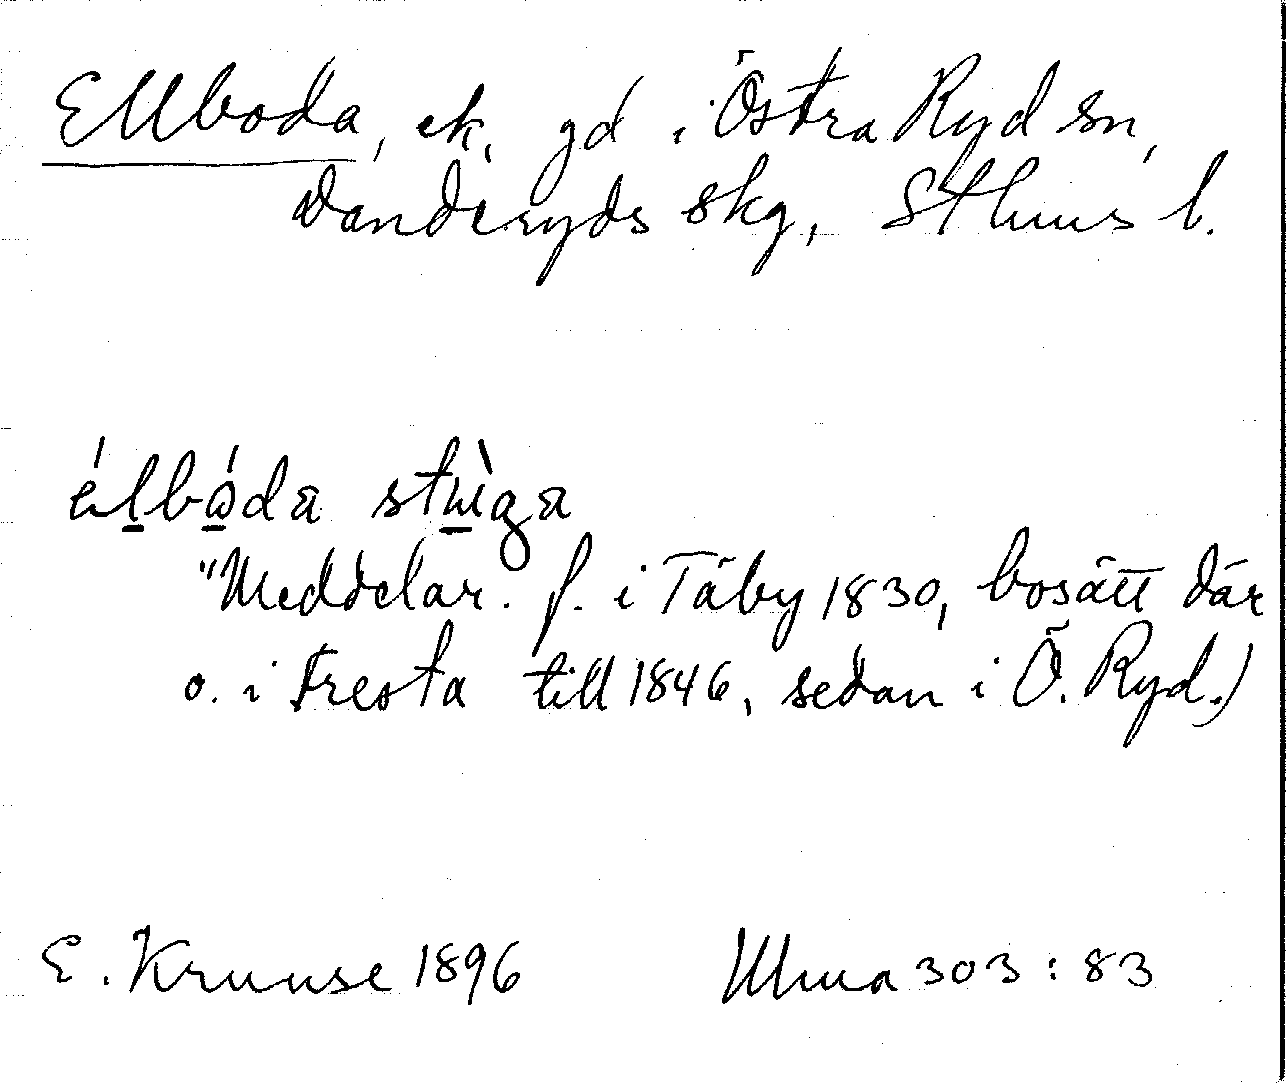 Ellboda, ek. gd i Östra Ryd sn,
Danderyds skg, Sthms l.
élbòda stɯ̀ga
"Meddelar. f. i Täby 1830, bosatt där
o. i Fresta till 1846, sedan i Ö. Ryd.)
E. Kruuse 1896 Ulma 303:83